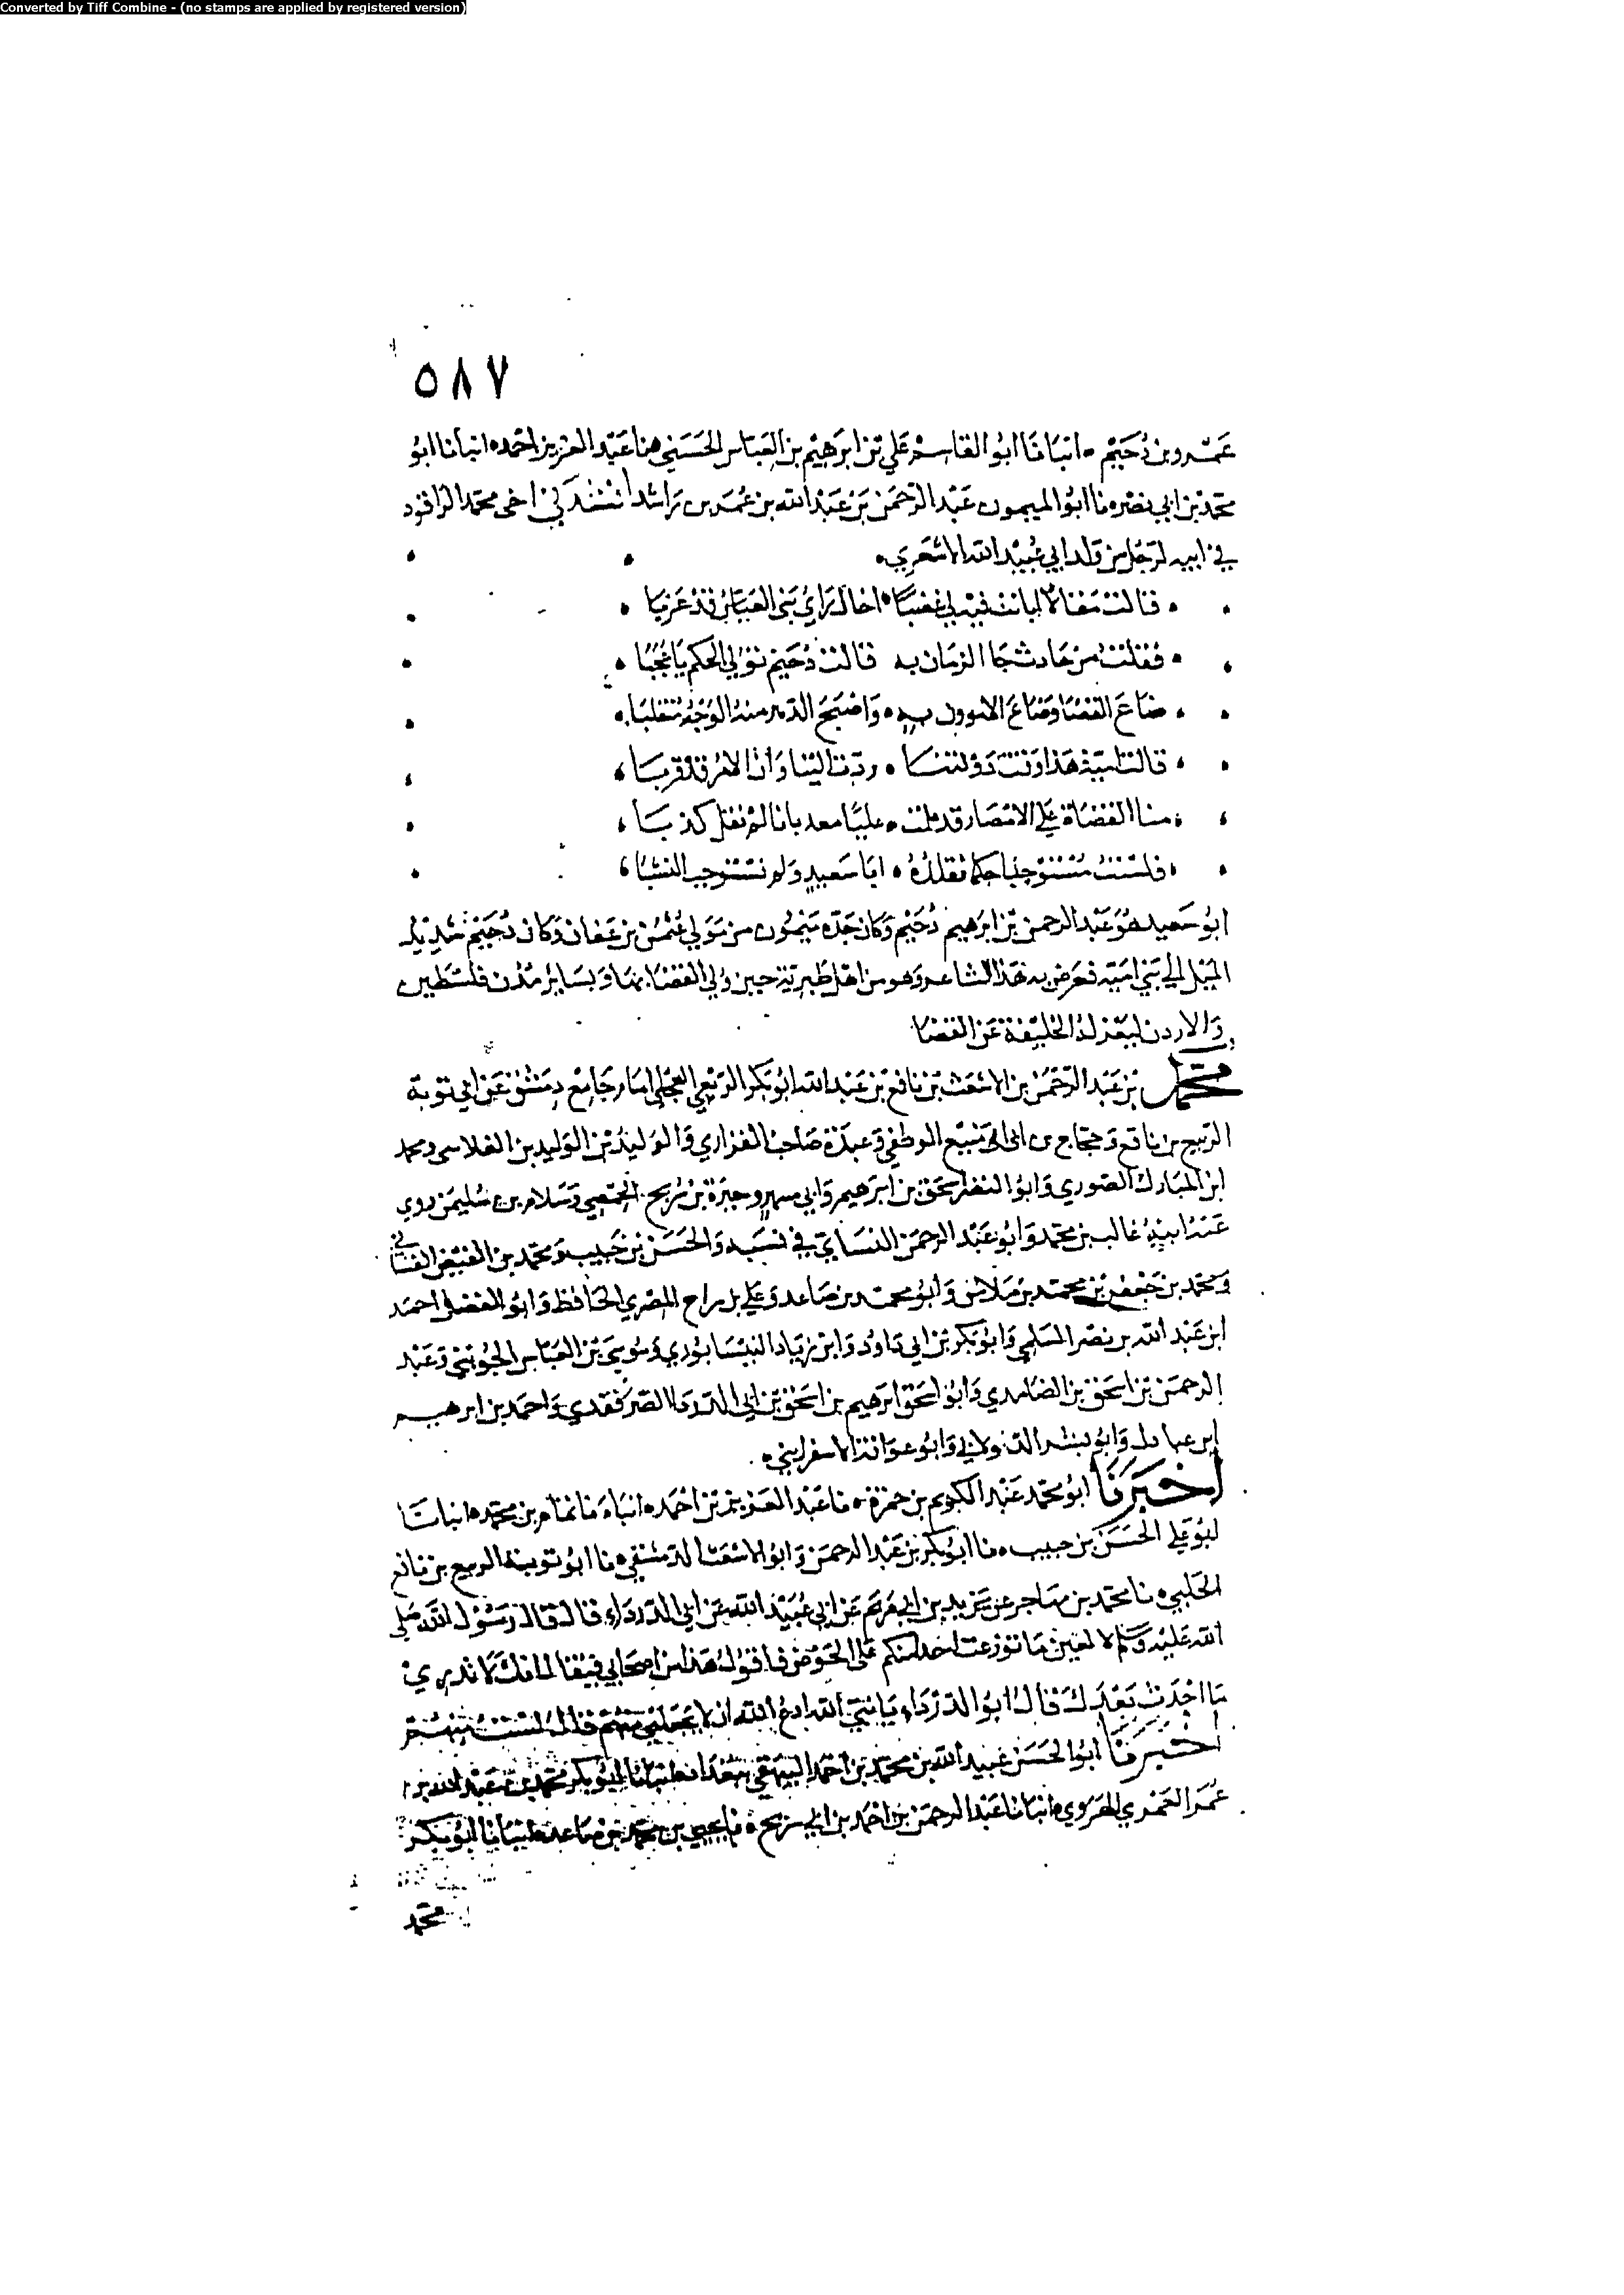 Converted by Tiff Combine - (no stamps are applied by registered version)
٥٨٧
عمرو بن دحيم • انبانا ابو القاسم علي بن ابرهيم بن العباس الحسيني نا عبد العزيز بن احمد انبانا ابو
محمد بن ابي نصر نا ابو الميمون عبد الرحمن بن عبد الله بن عمر بن راشد انشدني اخي محمد
في ابيه لرجل من ولد ابي عبيد الله الاشعري
فيه لي غضبا اخال راي بني العباس قد عزبا
فقلت من حادث جا الزمان به قالت دحيم تولى الحكم يا عجبا
ضاع القضا وضاع الامرون به واصبح الدهر منه الوجه منقلبا
قالت امية هذا وقت دولتنا ردت الينا وان الامر قد قربا
منا القضاة على الامصار قد ملت علينا معد بانا لم نقل كذبا
فلست مستوجبا حكما تقلده ابا سعيد ولم تستوجب النشبا
ابو سعيد هو عبد الرحمن بن ابرهيم دحيم وكان جده ميمون من مولي عثمن بن عفان وكان دحيم شديد
الميل الي بني امية فعرض به هذا الشاعر وهو من اهل طبرية حين ولي القضا بها وبساير مدن فلسطين
والاردن ليعزله الخليفة عن القضا
محمد بن عبد الرحمن بن الاشعث بن نافع بن عبد الله ابو بكر الربعي العجلي امام جامع دمشق عن ابي توبة
الربيع بن نافع وحجاج بن ابي منيع الوصافي وعبدة صاحب الفزاري والوليد بن الوليد بن القلاسي ومحمد
ابن المبارك الصوري وابو النضر اسحق بن ابرهيم وابي مسهر وحيوة بن شريح الحمصي وسلام بن سليمن روي
عنه ابنه غالب بن محمد وابو عبد الرحمن النساي في نسبه والحسن بن حبيب ومحمد بن الفيض الغساني
ومحمد بن جعفر بن محمد بن ملاس وابو محمد بن صاعد وعلي بن سراج المصري الحافظ وابو الفضل احمد
ابن عبد الله بن نصر السلمي وابو بكر بن ابي داود وابن زياد النيسابوري وموسى بن العباس الجويني وعبد
الرحمن بن اسحق بن الضامدي وابو اسحق ابرهيم بن اسحق بن ابي الدرداء الصرفندي واحمد بن ابرهيم
ابن عبادل وابو بشر الدولابي وابو عوانة الاسفرايني
اخبرنا ابو محمد عبد الكريم بن حمزة نا عبد العزيز بن احمد انبانا تمام بن محمد انبانا
ابو علي الحسن بن حبيب نا ابو بكر بن عبد الرحمن بن الاشعث الدمشقي نا ابو توبة الربيع بن نافع
الحلبي نا محمد بن مهاجر عن يزيد بن ابي مريم عن ابي عبيد الله عن ابي الدرداء قال قال رسول الله صلى
الله عليه وسلم لا لفين ما نوزعت احدا منكم على الحوض فاقول هذا من اصحابي فيقال انك لا تدري
ما احدث بعدك قال ابو الدرداء يا نبي الله ادع الله ان لا يجعلني منهم قال لست منهم
اخبرنا ابو الحسن عبيد الله بن محمد بن احمد البيهقي ببغداد انبانا ابو بكر محمد بن عبد الله بن
عمر العمري الهروي انبانا عبد الرحمن بن احمد بن ابي شريح نا يحيى بن محمد بن صاعد انبانا ابو بكر
محمد